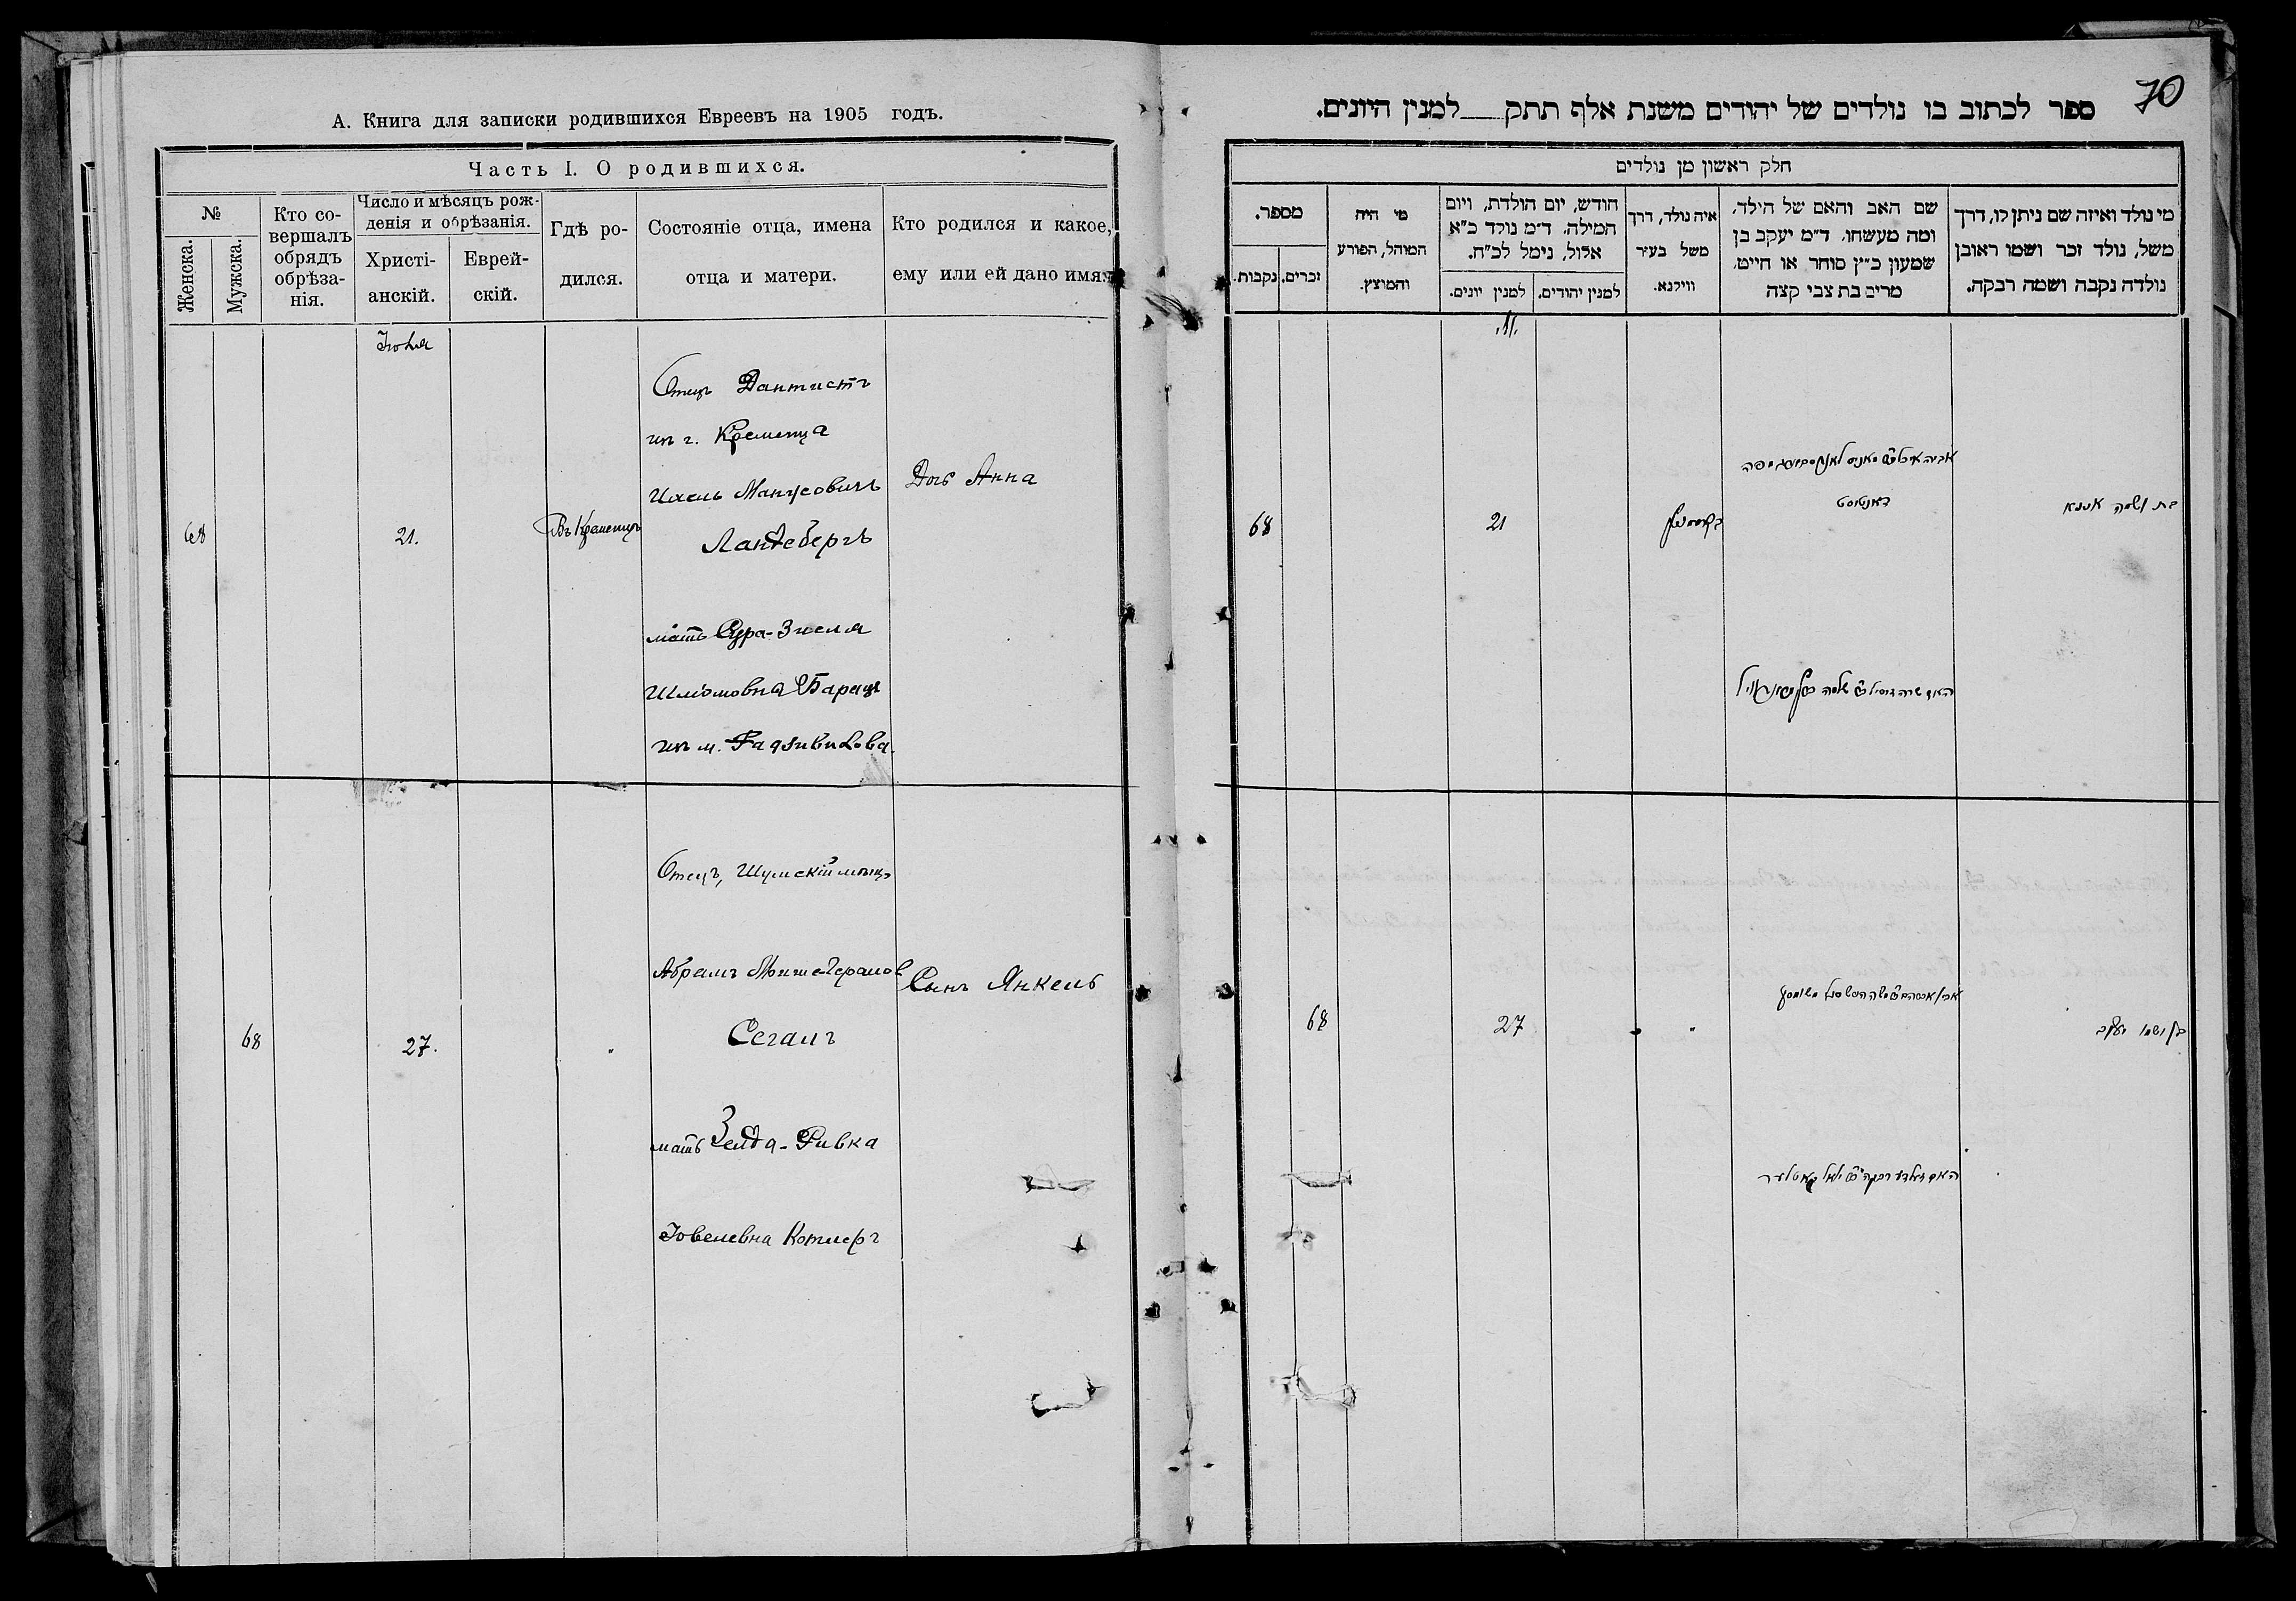 А. Книга для записки родившихся Евреевъ на 1905 годъ.
Часть I. О родившихся.
№
Женска.
Мужска.
Кто со-
вершалъ
обрядъ
обрѣза-
нія.
Число и мѣсяцъ рож-
денія и обрѣзанія.
Христі-
анскій.
Еврей-
скій.
Гдѣ ро-
дился.
Состояніе отца, имена
отца и матери.
Кто родился и какое,
ему или ей дано имя.
68
21.
Въ Кременцѣ
Отецъ Дантистъ
из г. Кременца
Ландсбергъ
мать Сура-Зисля
Шліомовна Барацъ
из м. Радзивилова.
Дочь Анна
68
27.
"
Отецъ, Шумскій мѣщ.
Абрамъ
Сегалъ
мать Зелда-Ривка
Котлеръ
Сынъ Янкель
70
ספר לכתוב בו נולדים של יהודים משנת אלף תתק__למנין היונים.
חלק ראשון מן נולדים
מי נולד ואיזה שם ניתן לו, דרך
משל, נולד זכר ושמו ראובן
נולדה נקבה ושמה רבקה.
שם האב והאם של הילד,
ומה מעשהו. ד״מ יעקב בן
שמעון כ״ץ סוחר או חייט,
מרים בת צבי קצה
איה נולד, דרך
משל בעיר
ווילנא.
חודש, יום הולדת, ויום
המילה. ד״מ נולד כ״א
אלול, נימל לכ״ח.
למנין יהודים.
למנין יונים.
מי היה
המוהל, הפורע
והמוצץ.
מספר.
זכרים.
נקבות.
בת ושמה אננא
דאנטיסט
21
68
בן ושמו יעקב
"
27
68